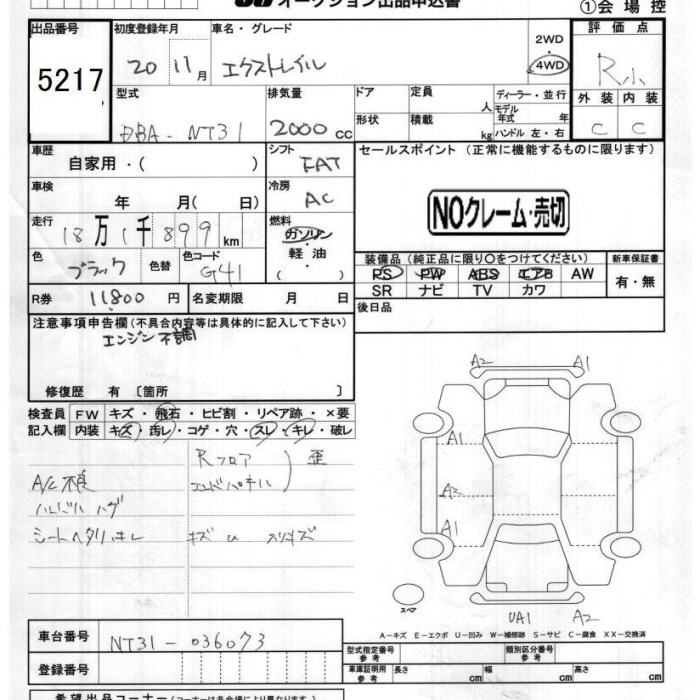 オークション出品申込書 ①会場控
出品番号 初度登録年月 車名・グレード 評価点
5217 20 11月 エクストレイル 2WD 4WD R小
型式 排気量 ドア 定員 人 ディーラー・並行 外装 内装
DBA-NT31 2000cc 形状 積載 kg モデル年式 年 ハンドル 左・右 C C
車歴 シフト セールスポイント (正常に機能するものに限ります)
自家用・( ) FAT
車検 冷房
年 月( 日) AC NOクレーム・売切
走行 燃料
18万1千899km ガソリン・軽油・( )
色 色替 色コード 装備品(純正品に限り○をつけてください) 新車保証書
ブラック G41 PS PW ABS エアB AW 有・無
SR ナビ TV カワ
R券 11800円 名変期限 月 日 後日品
注意事項申告欄(不具合内容等は具体的に記入して下さい)
エンジン不調
修復歴 有〔箇所 〕
検査員 FW キズ・飛石・ヒビ割・リペア跡・×要
記入欄 内装 キズ・汚レ・コゲ・穴・スレ・キレ・破レ
Rフロア 歪
A/C不良 エンドパネル
ハンドルハゲ
シートヘタリ キレ キズ U スリキズ
A2 A1
A1
A2
A1
スペア UA1 A2
A-キズ E-エクボ U-凹み W-補修跡 S-サビ C-腐食 XX-交換済
車台番号 NT31-036073
型式指定番号 参考 類別区分番号 参考
登録番号 車庫証明用 参考 長さ cm 幅 cm 高さ cm
希望出品コーナー